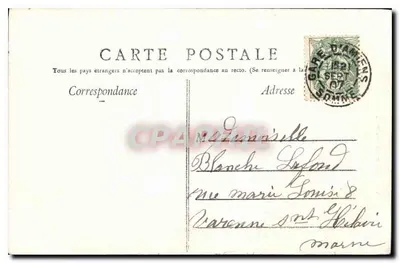 CARTE POSTALE
Tous les pays étrangers n'acceptent pas la correspondance au recto. (Se renseigner à la
Correspondance
Adresse
GARE D'AMIENS
SEPT
07
SOMME
Mademoiselle
Blanche Lafond
rue marie Louise 8
Varenne snt Hilaire
Marne